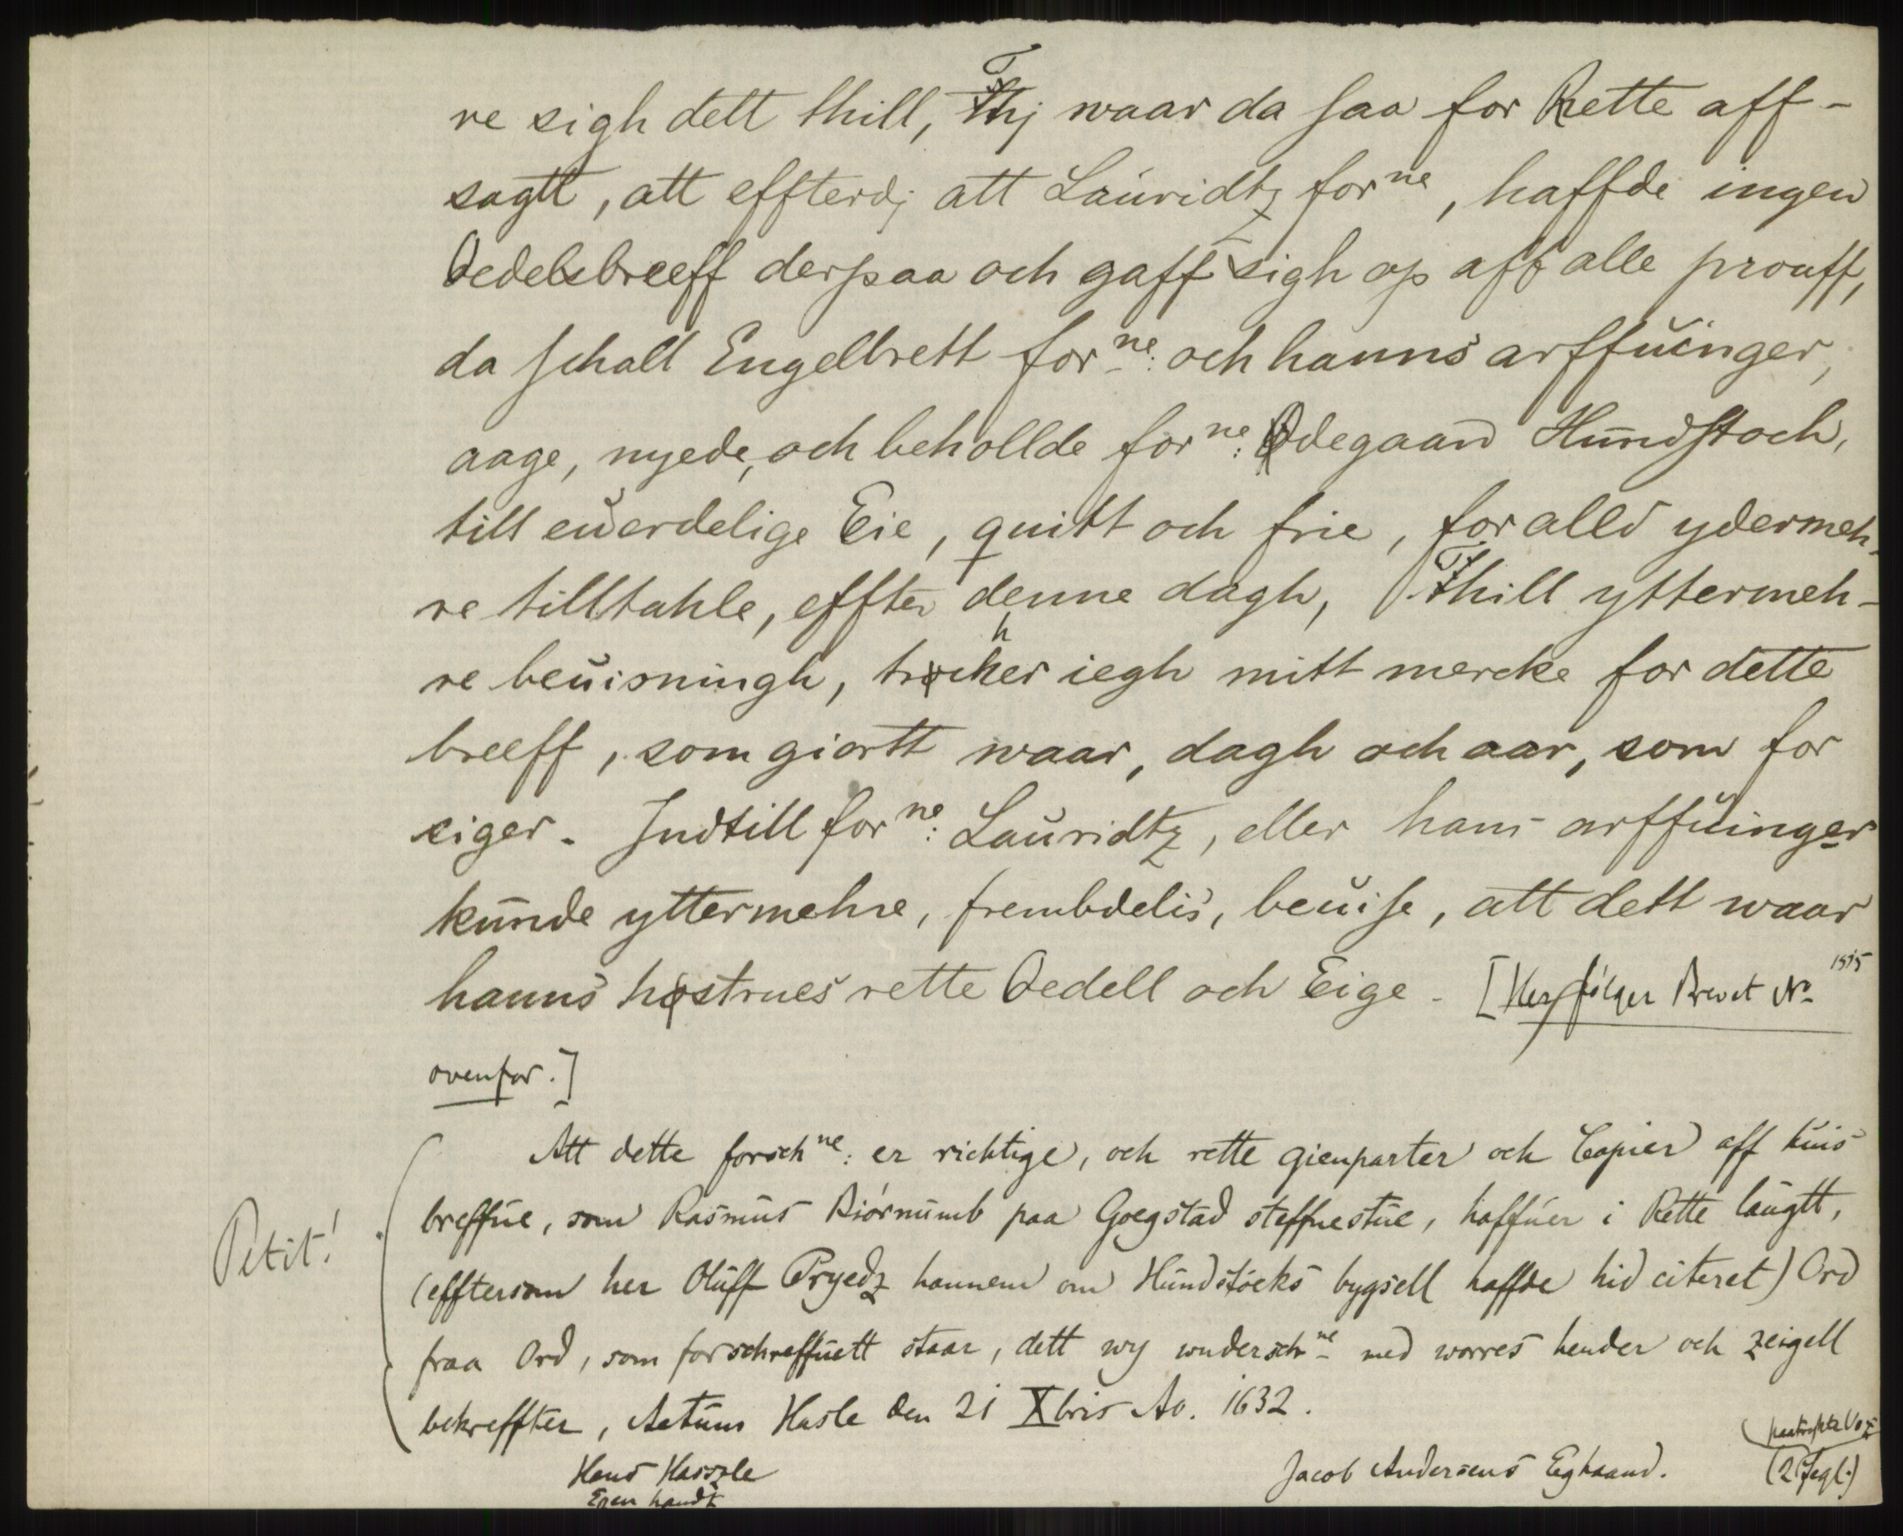 re sigh dett thill, Thj waar da saa for Rette aff-
sagtt, att effterdj att Lauridtz forne, haffde ingen
Oedelsbreeff derpaa och gaff sigh op aff alle prouff,
da schall Engelbrett forne: och hanns arffuinger,
aage, nyede, och behollde forne: Ødegaard Hundstoch,
till euerdelige Eie, quitt och frie, for alld ydermeh-
re tilltahle, effter denne dagh, Thill yttermeh-
re beuisningh, trøcker iegh mitt mercke for dette
breeff, som giortt waar, dagh och aar, som for
siger. Indtill forne: Lauridtz, eller hans arffuinger
kunde yttermehre, frembdelis, beuise, att dett waar
hanns høstrues rette Oedell och Eige. [Her følger Brevet No 1515
ovenfor.]
Att dette forschne: er richtige, och rette gienparter och Copier aff huis
breffue, som Rasmus Biørnumb paa Goegstad steffnestue, haffuer i Rette laugtt,
Petit!
(efftersom her Oluff Pryedz hannem om Hundstocks bygsell haffde hid citeret) Ord
fraa Ord, som forschreffuett staar, dett wy underschne med worres hender och zeigell
bekreffter, Actum Hasle den 21 Xbris Ao. 1632.
Hans Haszle
Egen handt
Jacob Andersens Eghaand.
(2 Segl.)